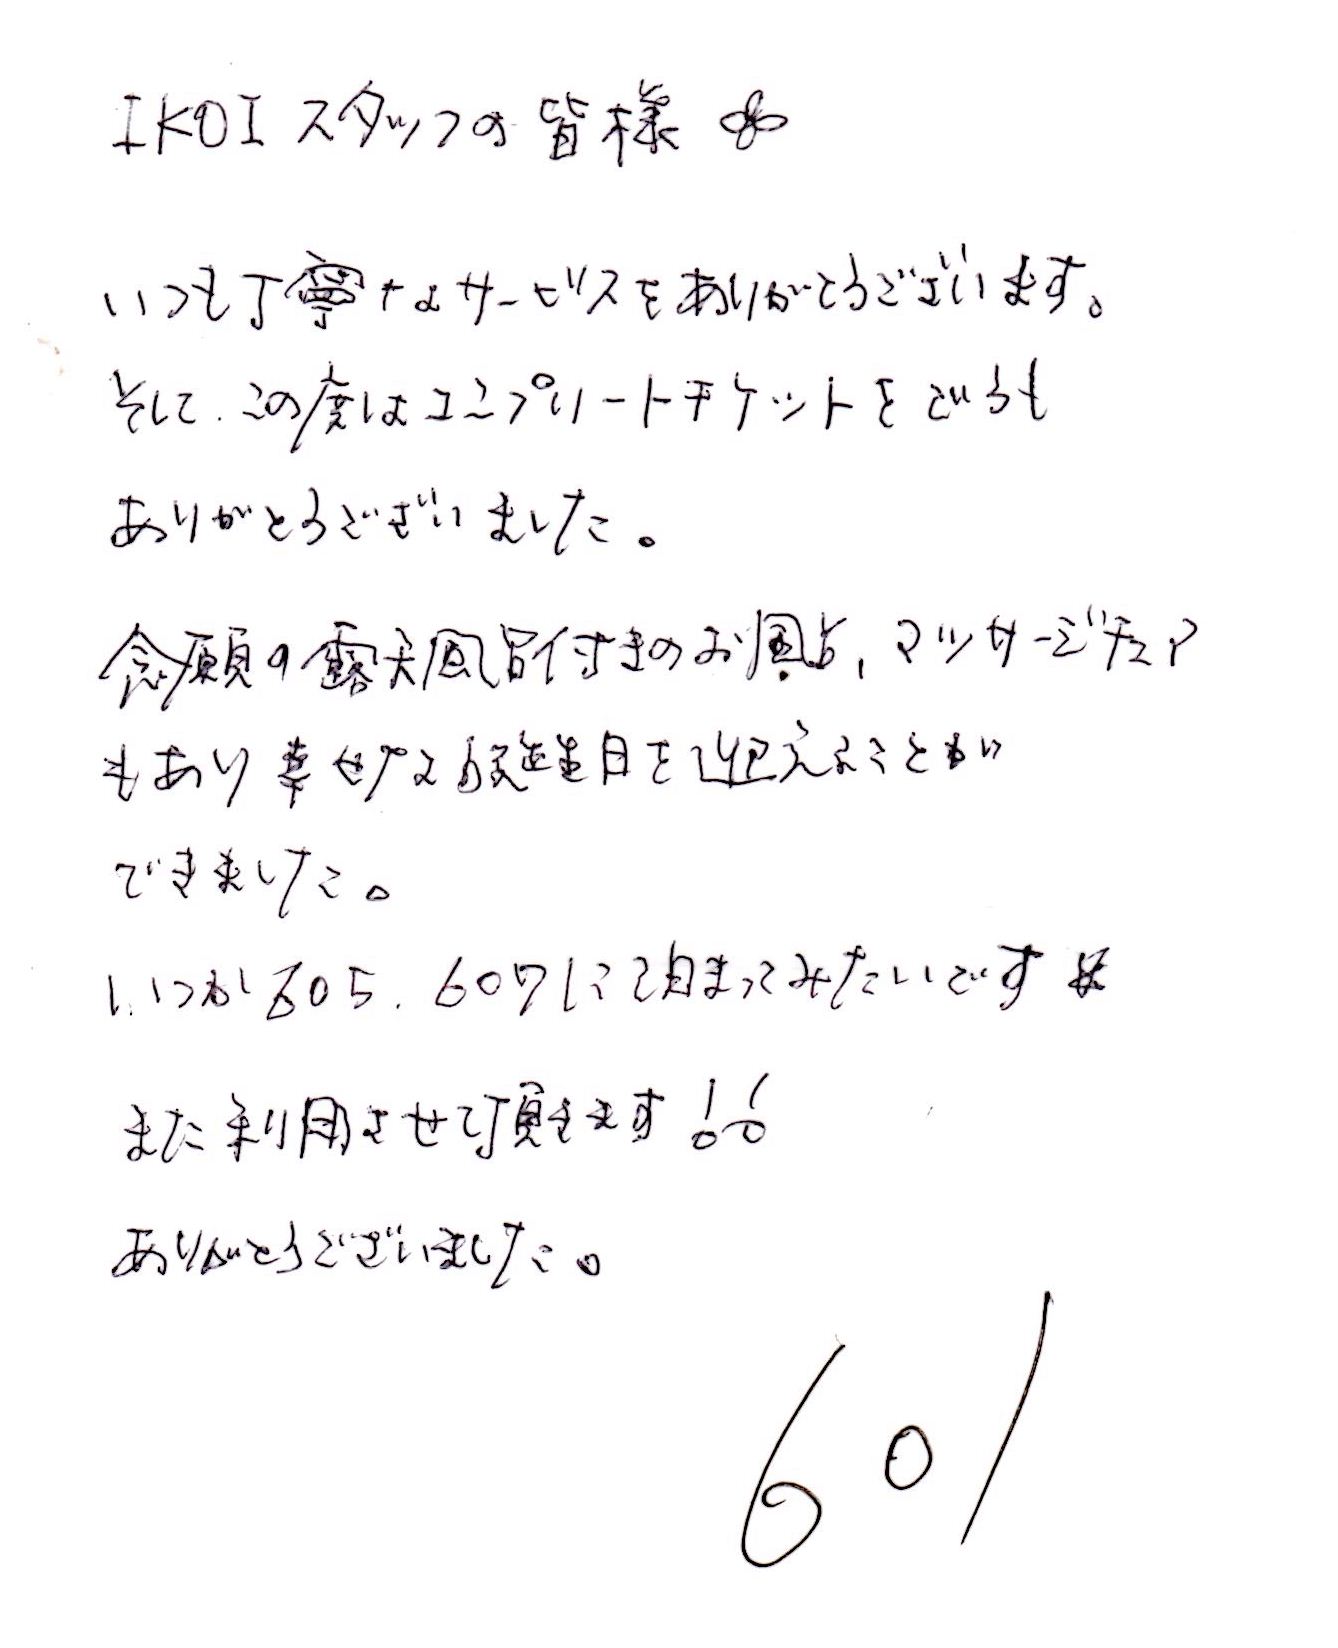 IKOIスタッフの皆様
いつも丁寧なサービスをありがとうございます。
そして、この度はコンプリートチケットをどうも
ありがとうございました。
念願の露天風呂付きのお風呂、マッサージチェア
もあり幸せな誕生日を迎えることが
できました。
いつか605、607にて泊まってみたいです
また利用させて頂きます!!
ありがとうございました。
601